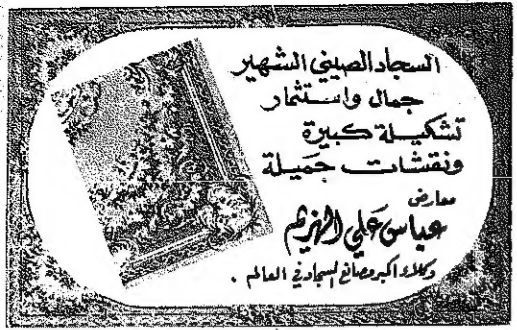 السجاد الصيني الشهير
جمال واستثمار
تشكيلة كبيرة
ونقشات جميلة
معارض
عباس علي الهزيم
وكلاء اكبر مصانع السجاد في العالم .